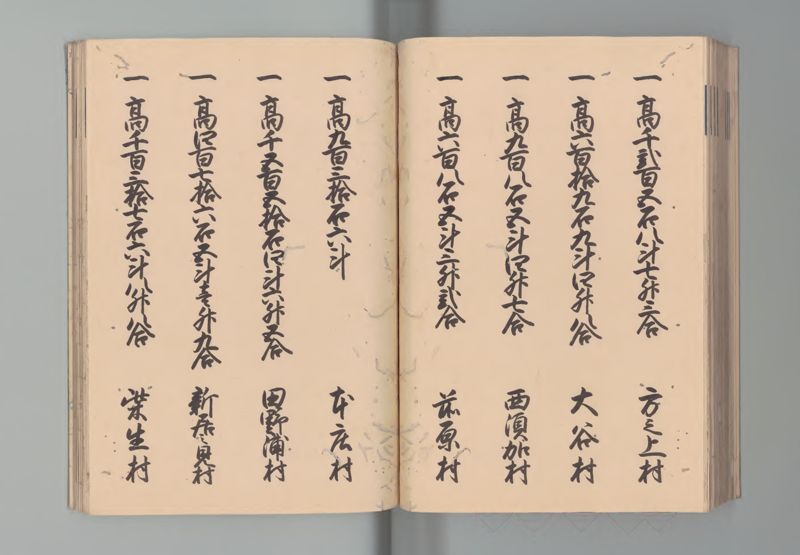 一 高千弐百五石八斗七升三合 方之上村
一 高六百拾九石九斗四升八合 大谷村
一 高九百八石五斗四升七合 西須加村
一 高六百八石五斗三升弐合 前原村
一 高九百三拾石六斗 本庄村
一 高千五百五拾石四斗六升五合 田野浦村
一 高四百七拾六石五斗壱升九合 新居之貝村
一 高千百三拾七石六斗八升八合 柴生村